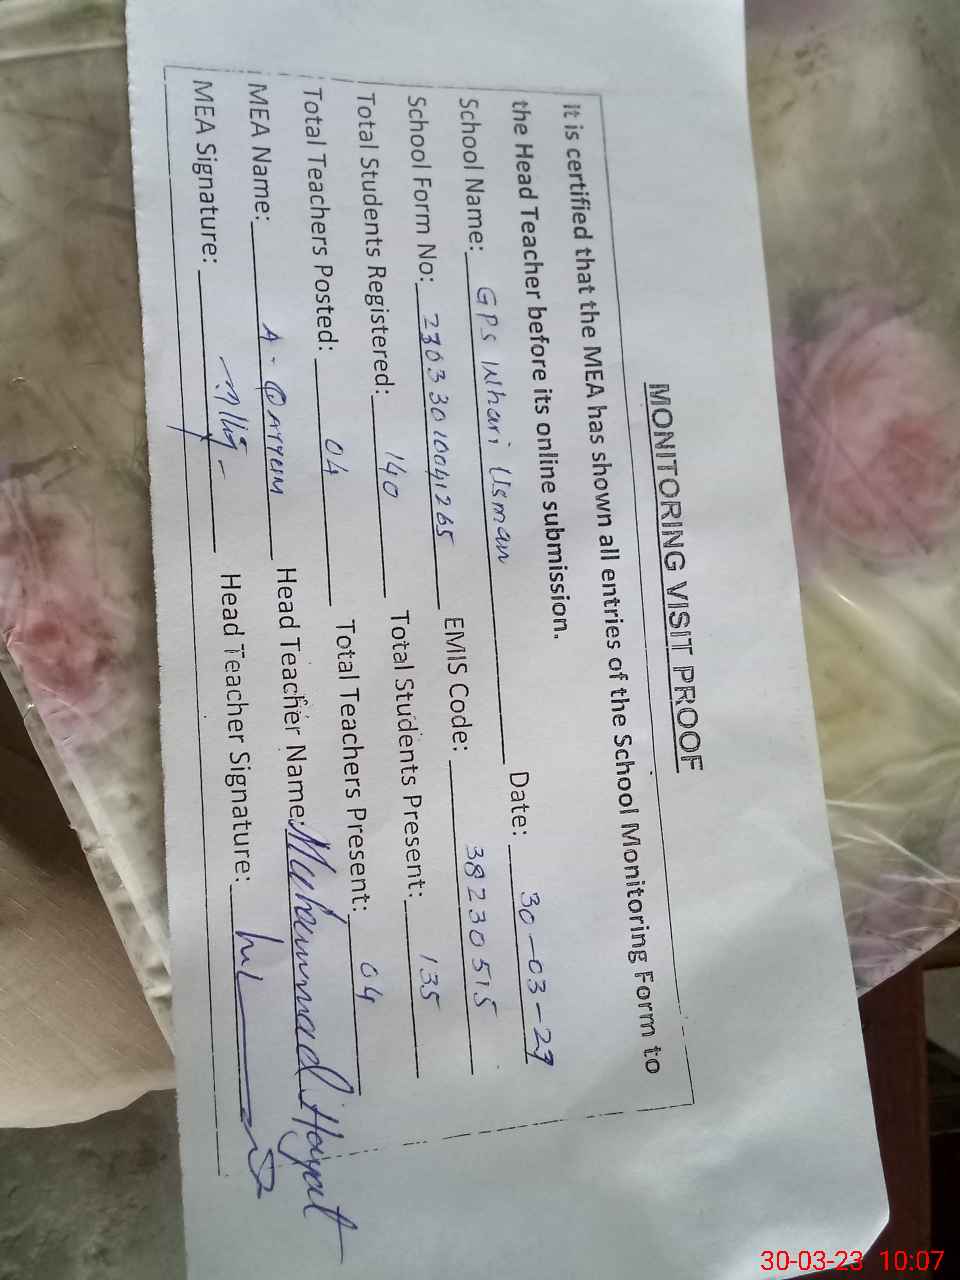 MONITORING VISIT PROOF
It is certified that the MEA has shown all entries of the School Monitoring Form to
the Head Teacher before its online submission.
School Name: GPS Whari Usman Date: 30-03-23
School Form No: 23033010041265 EMIS Code: 38230515
Total Students Registered: 140 Total Students Present: 135
Total Teachers Posted: 04 Total Teachers Present: 04
MEA Name: A. Qayyum Head Teacher Name: Muhammad Hayat
MEA Signature: Head Teacher Signature:
30-03-23 10:07